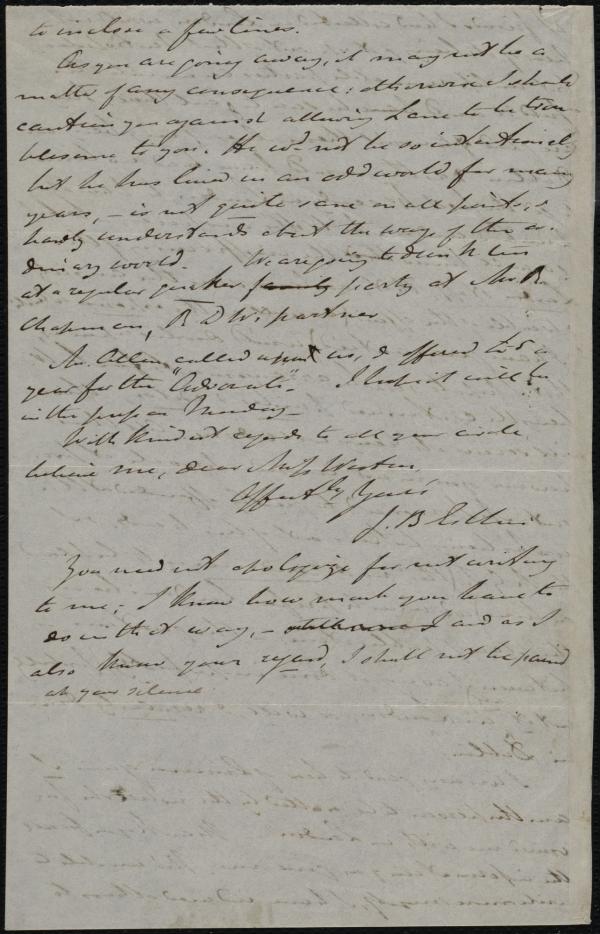 to inclose a few lines.
As you are going away, it may not be a
matter of any consequence; otherwise I should
caution you against allowing Lane to be trou-
blesome to you. He wd. not be so intentionally
but he has lived in an odd world for many
years, – is not quite sane on all points, &
hardly understands about the ways of the or-
dinary world. We are going to drink tea
at a regular quaker family party at Mr. B.
Chapman, R D W's partner
Mr. Allen called upon us, & offered £5 a
year for the "Advocate". I hope it will be
in the press on Monday –
With kindest regards to all your circle
believe me, dear Miss Weston,
Affectly Yours
J. B Estlin
You need not apologize for not writing
to me; I know how much you have to
do in that way, – and as I
also know your regard, I shall not be pained
at your silence